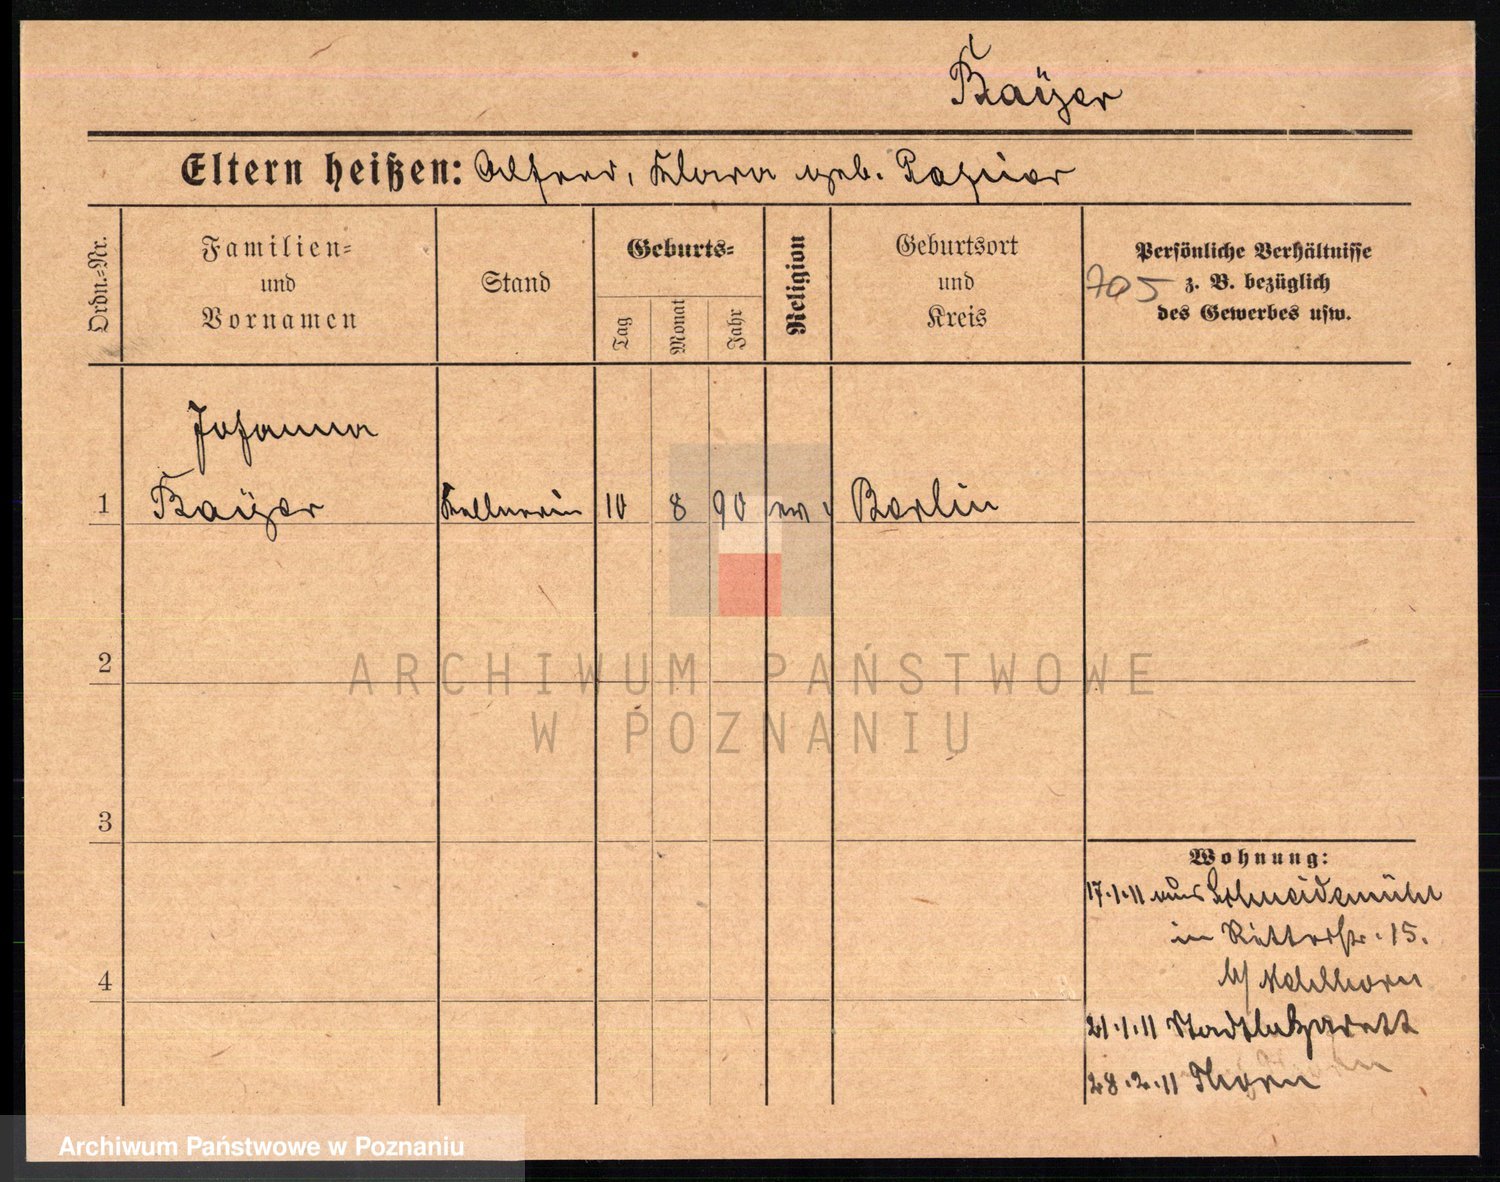 Bayer
Eltern heißen: Alfred, Klara geb. Papier
Ordn.-Nr.
Familien-
und
Vornamen
Stand
Geburts-
Tag
Monat
Jahr
Religion
Geburtsort
und
Kreis
Persönliche Verhältnisse
z. B. bezüglich
des Gewerbes usw.
705
Johanna
1 Bayer Kellnerin 10 8 90 ev. Berlin
2
3
4
Wohnung:
17.1.11 aus Schneidemühl
in Ritterstr. 15.
b/
21.1.11 Stadtlazarett
28.2.11 Thorn
ARCHIWUM PAŃSTWOWE
W POZNANIU
Archiwum Państwowe w Poznaniu